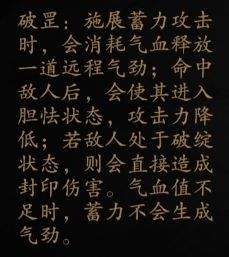 破罡：施展蓄力攻击
时，会消耗气血释放
一道远程气劲；命中
敌人后，会使其进入
胆怯状态，攻击力降
低；若敌人处于破绽
状态，则会直接造成
封印伤害。气血值不
足时，蓄力不会生成
气劲。